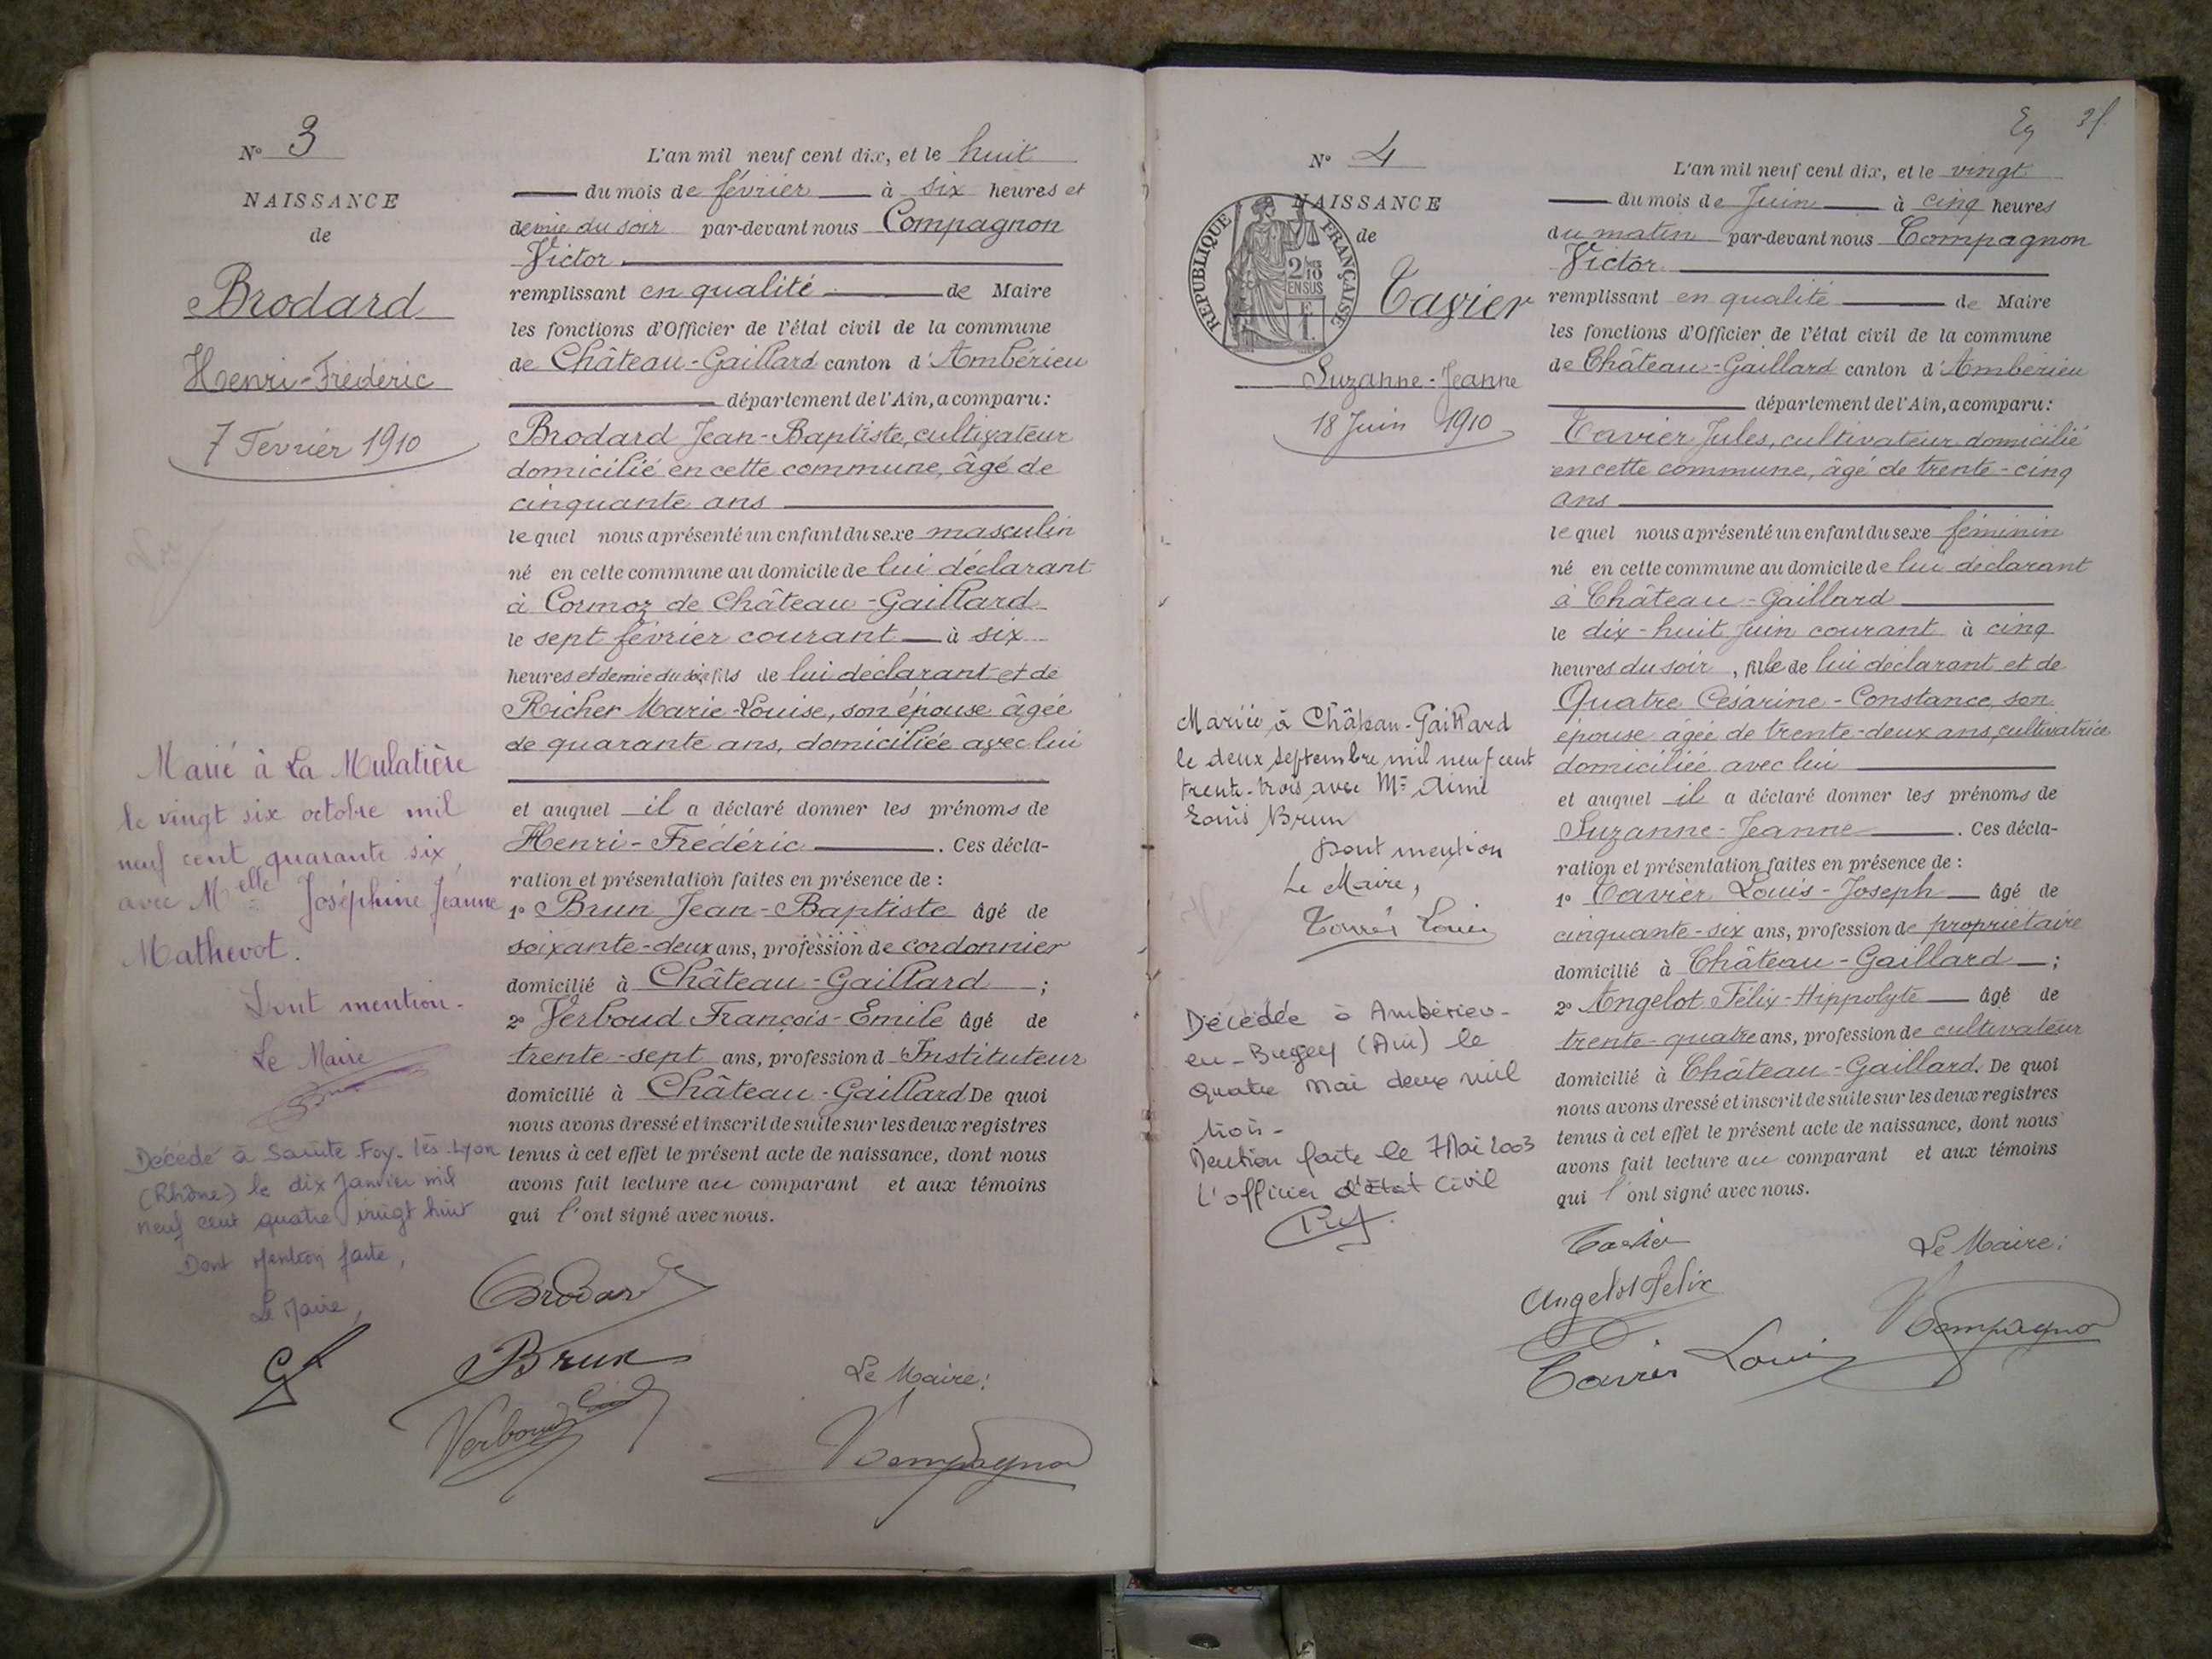 N° 3
NAISSANCE
de
Brodard
Henri-Frédéric
7 Février 1910
Marié à La Mulatière
le vingt six octobre mil
neuf cent quarante six,
avec Melle Joséphine Jeanne
Mathevot.
Dont mention.
Le Maire
Décédé à Sainte-Foy-lès-Lyon
(Rhône) le dix Janvier mil
neuf cent quatre vingt huit
Dont Mention faite,
Le Maire,
L'an mil neuf cent dix, et le huit
du mois de février à six heures et
demie du soir par-devant nous Compagnon
Victor
remplissant en qualité de Maire
les fonctions d'Officier de l'état civil de la commune
de Château-Gaillard canton d'Ambérieu
département de l'Ain, a comparu:
Brodard Jean-Baptiste, cultivateur
domicilié en cette commune, âgé de
cinquante ans
lequel nous a présenté un enfant du sexe masculin
né en cette commune au domicile de lui déclarant
à Cormoz de Château-Gaillard
le sept février courant à six
heures et demie du soir, fils de lui déclarant et de
Richer Marie-Louise, son épouse âgée
de quarante ans, domiciliée avec lui
et auquel il a déclaré donner les prénoms de
Henri-Frédéric. Ces décla-
ration et présentation faites en présence de :
1° Brun Jean-Baptiste âgé de
soixante-deux ans, profession de cordonnier
domicilié à Château-Gaillard ;
2° Verboud François-Emile âgé de
trente-sept ans, profession d'Instituteur
domicilié à Château-Gaillard De quoi
nous avons dressé et inscrit de suite sur les deux registres
tenus à cet effet le présent acte de naissance, dont nous
avons fait lecture au comparant et aux témoins
qui l'ont signé avec nous.
Brodard
Brun
Verboud
Le Maire:
Compagnon
31
N° 4
NAISSANCE
de
REPUBLIQUE FRANÇAISE
2/10
EN SUS
Tavier
Suzanne-Jeanne
18 Juin 1910
Mariée à Château-Gaillard
le deux septembre mil neuf cent
trente-trois avec Mr Aimé
Louis Brun
Dont mention
Le Maire,
Tavier Louis
Décédée à Ambérieu-
en-Bugey (Ain) le
quatre mai deux mil
trois-
Mention faite le 7 Mai 2003
L'officier d'Etat Civil
L'an mil neuf cent dix, et le vingt
du mois de Juin à cinq heures
du matin par-devant nous Compagnon
Victor
remplissant en qualité de Maire
les fonctions d'Officier de l'état civil de la commune
de Château-Gaillard canton d'Ambérieu
département de l'Ain, a comparu:
Tavier Jules, cultivateur domicilié
en cette commune, âgé de trente-cinq
ans
lequel nous a présenté un enfant du sexe féminin
né en cette commune au domicile de lui déclarant
à Château-Gaillard
le dix-huit Juin courant à cinq
heures du soir, fille de lui déclarant et de
Quatre Césarine-Constance, son
épouse âgée de trente-deux ans, cultivatrice
domiciliée avec lui
et auquel il a déclaré donner les prénoms de
Suzanne-Jeanne. Ces décla-
ration et présentation faites en présence de :
1° Tavier Louis-Joseph âgé de
cinquante-six ans, profession de propriétaire
domicilié à Château-Gaillard ;
2° Angelot Félix-Hippolyte âgé de
trente-quatre ans, profession de cultivateur
domicilié à Château-Gaillard. De quoi
nous avons dressé et inscrit de suite sur les deux registres
tenus à cet effet le présent acte de naissance, dont nous
avons fait lecture au comparant et aux témoins
qui l'ont signé avec nous.
Tavier
Angelot Félix
Tavier Louis
Le Maire:
Compagnon